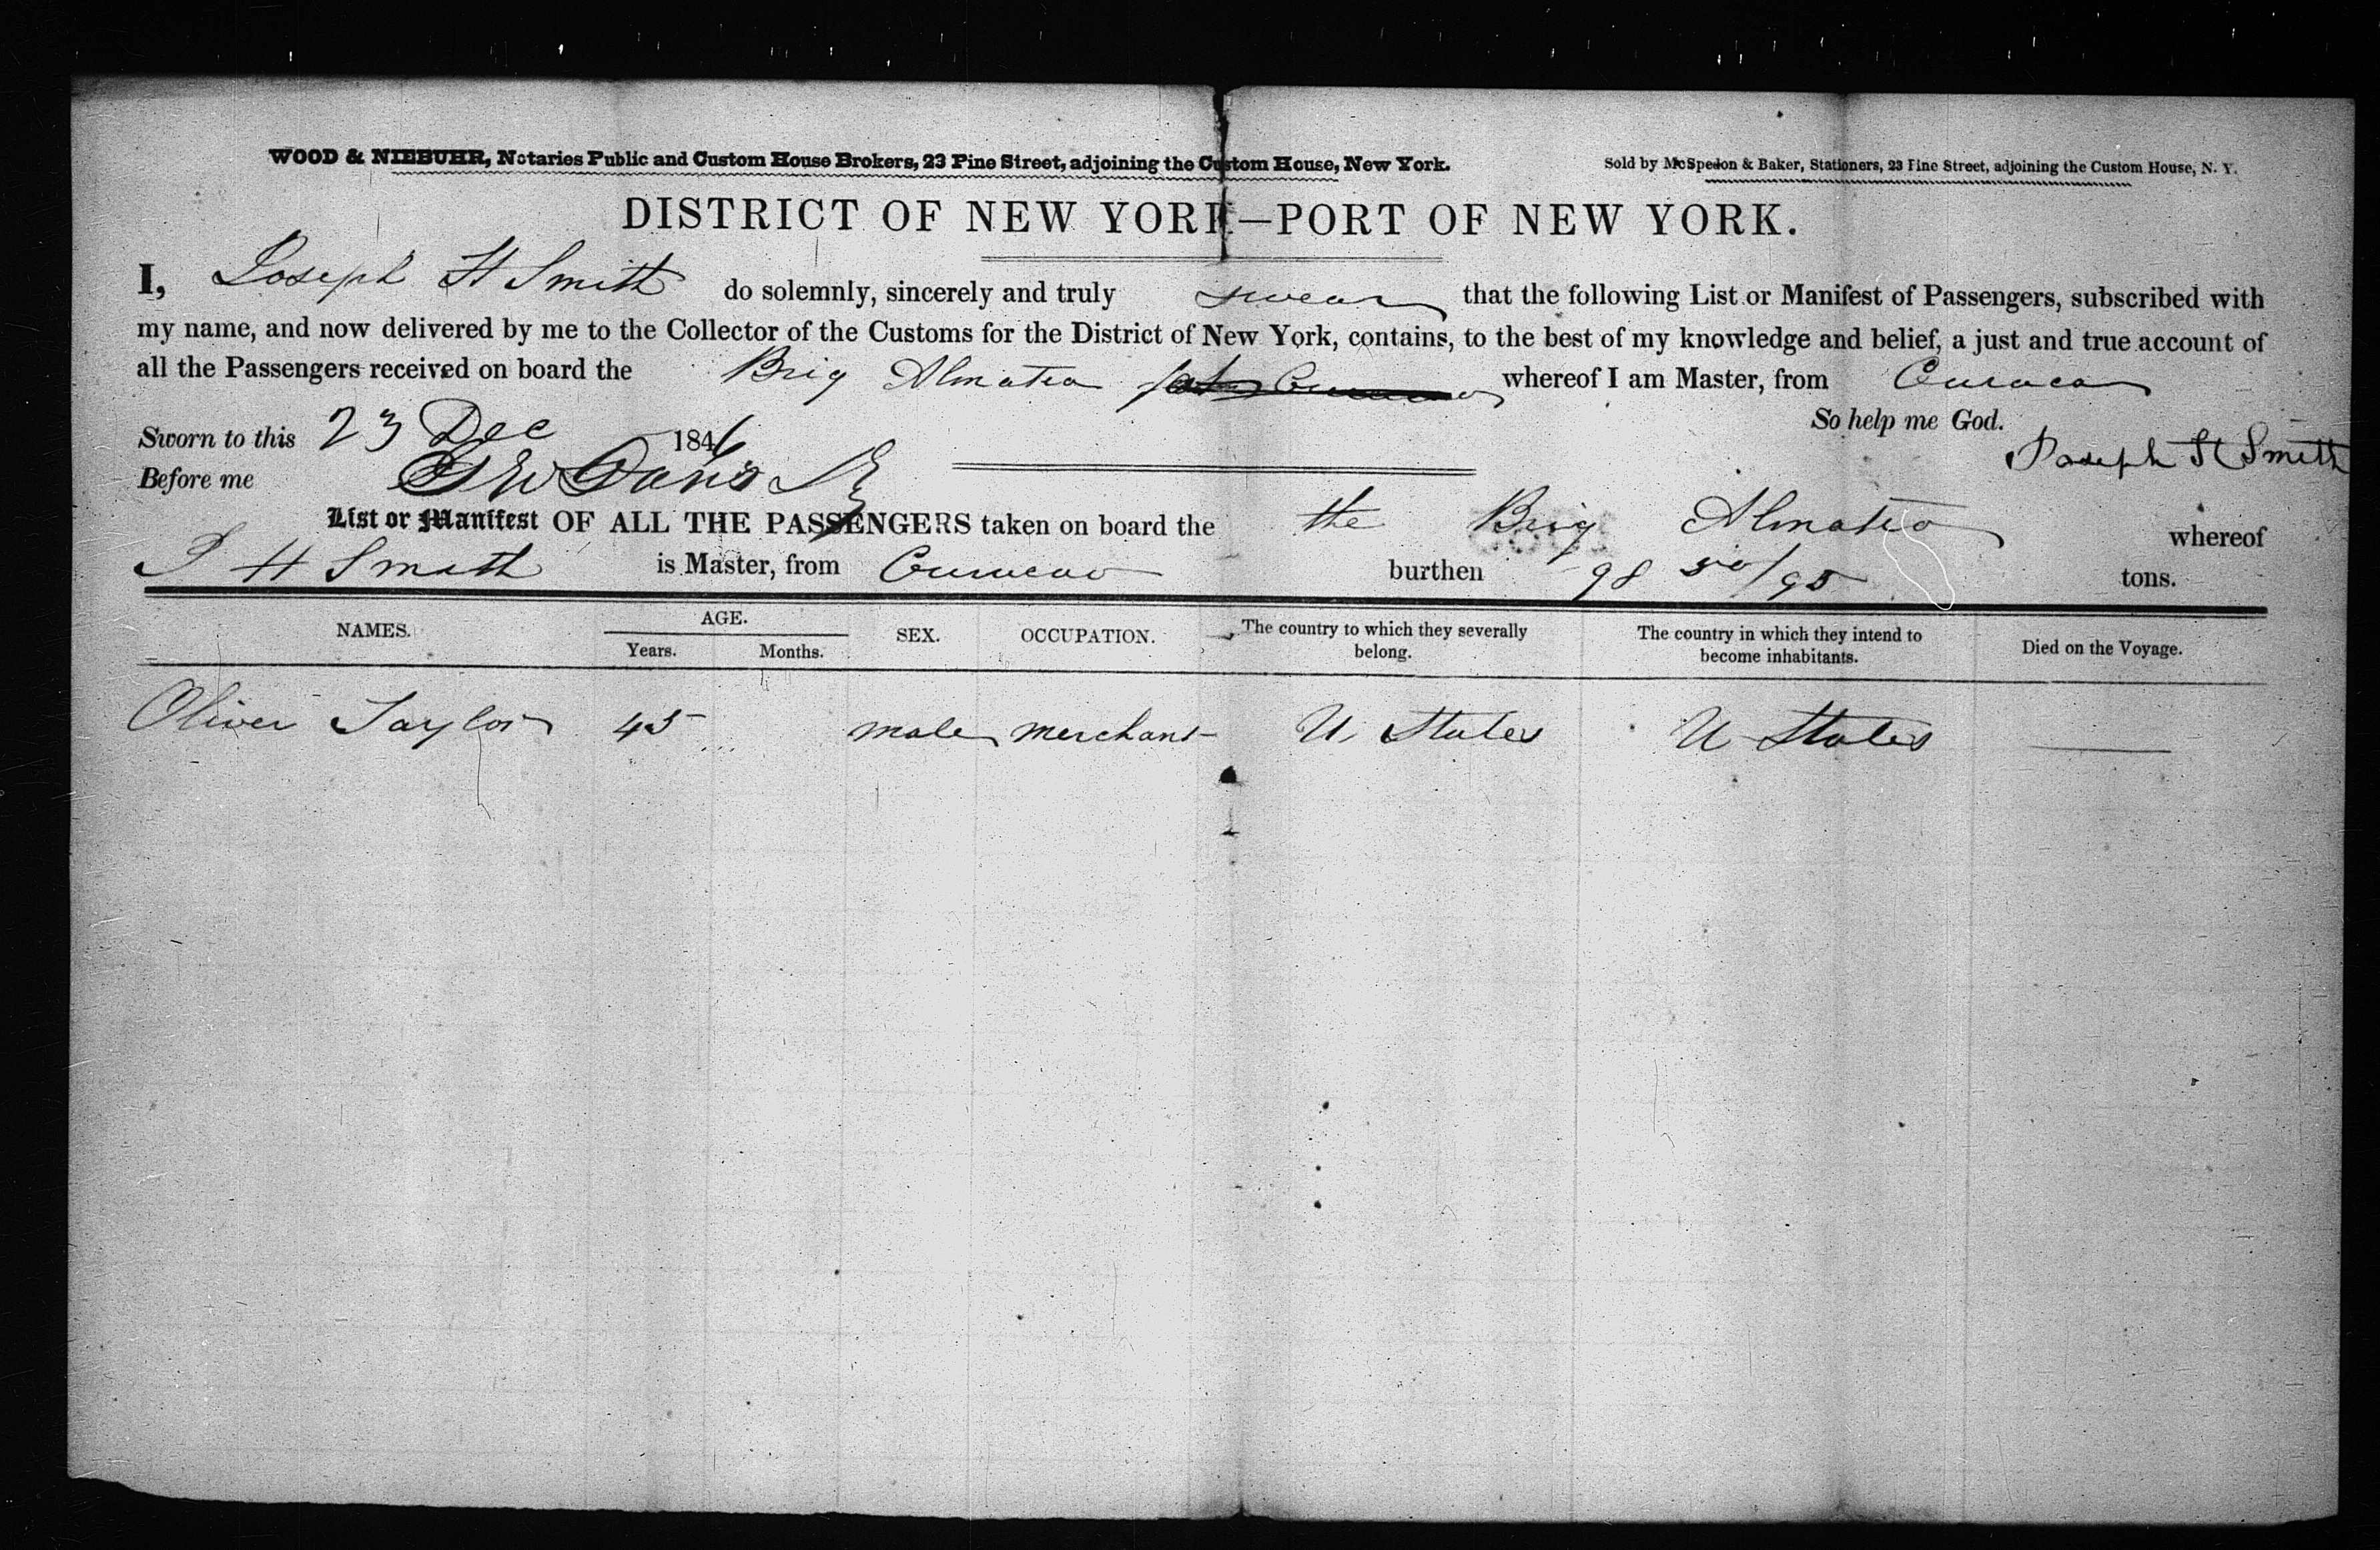 WOOD & NIEBUHR, Notaries Public and Custom House Brokers, 23 Pine Street, adjoining the Custom House, New York.
Sold by McSpedon & Baker, Stationers, 23 Pine Street, adjoining the Custom House, N. Y.
DISTRICT OF NEW YORK—PORT OF NEW YORK.
I, Joseph H Smith do solemnly, sincerely and truly swear that the following List or Manifest of Passengers, subscribed with
my name, and now delivered by me to the Collector of the Customs for the District of New York, contains, to the best of my knowledge and belief, a just and true account of
all the Passengers received on board the Brig Almatia whereof I am Master, from Curacao
So help me God.
Sworn to this 23 Dec 1846
Joseph H Smith
Before me
List or Manifest OF ALL THE PASSENGERS taken on board the the Brig Almatia whereof
J H Smith is Master, from Curacao burthen 98 50/95 tons.
NAMES. AGE. Years. Months. SEX. OCCUPATION. The country to which they severally belong. The country in which they intend to become inhabitants. Died on the Voyage.
Oliver Taylor 45 male merchant U. States U States —